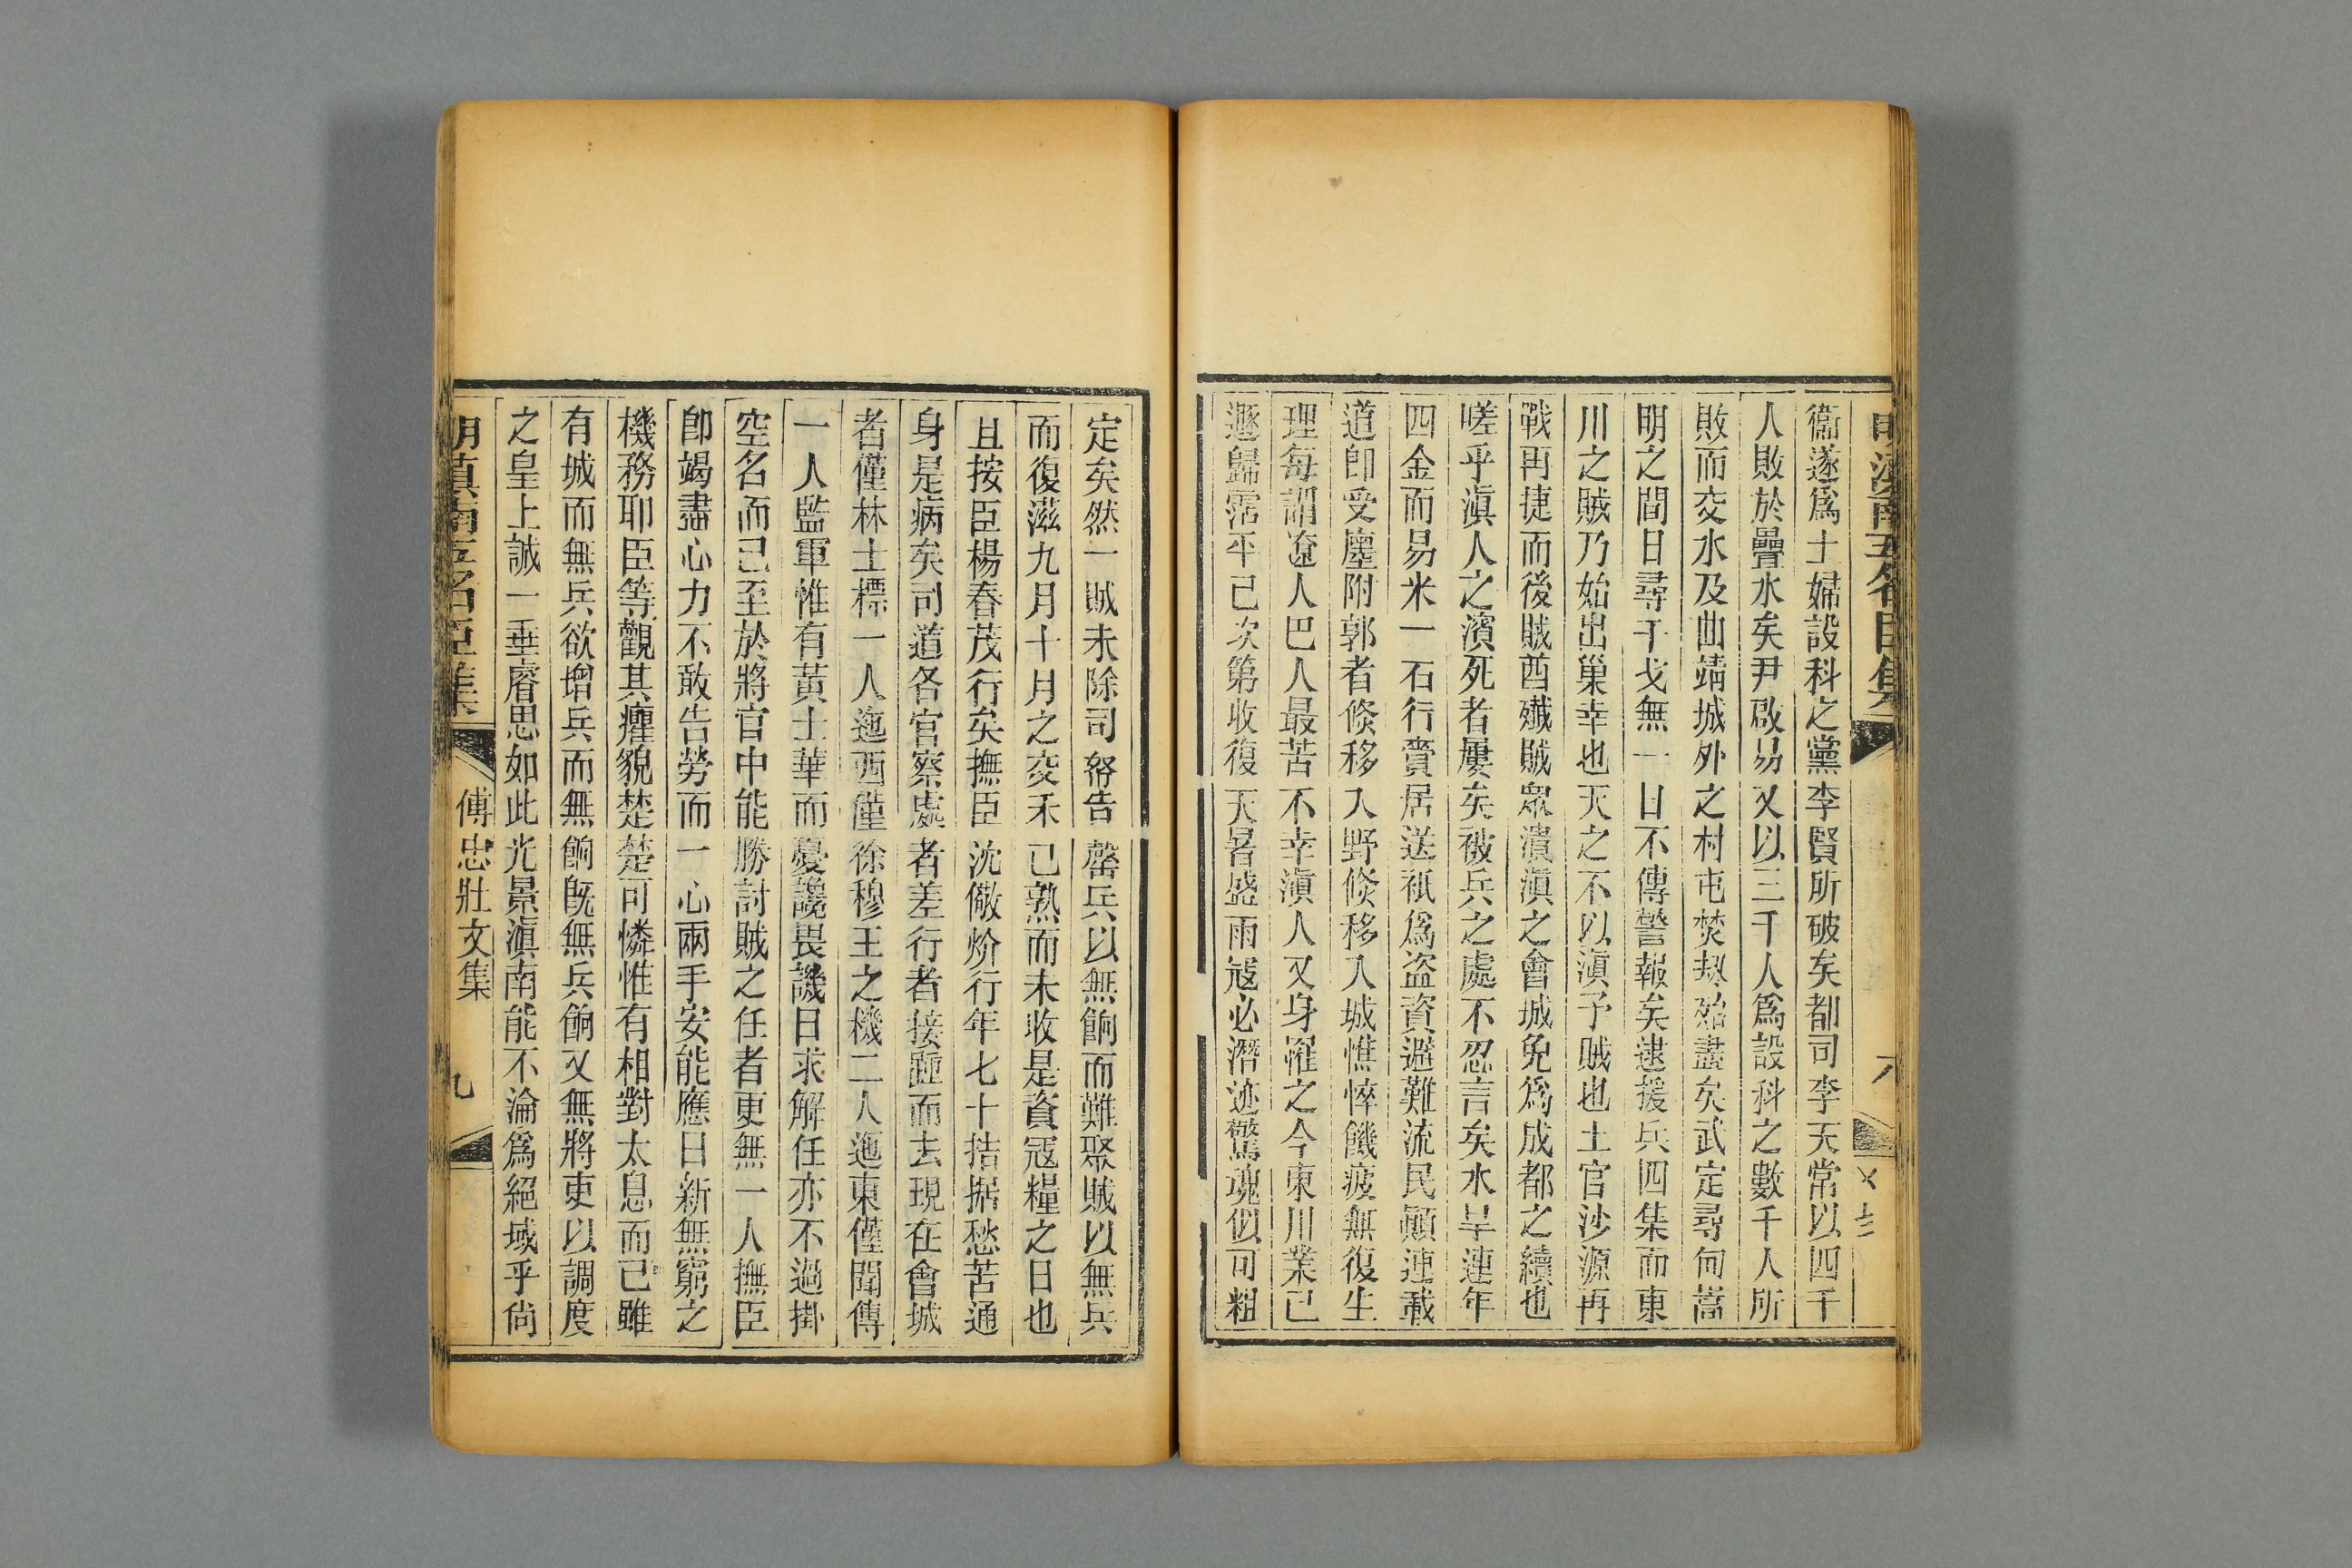 明滇南五名臣集
八
衞遂爲土婦設科之黨李賢所破矣都司李天常以四千
人敗於疊水矣尹啟易又以三千人爲設科之數千人所
敗而交水及曲靖城外之村屯焚刼殆盡矣武定尋甸嵩
明之間日尋干戈無一日不傳警報矣逮援兵四集而東
川之賊乃始出巢幸也天之不以滇予賊也土官沙源再
戰再捷而後賊酋殱賊衆潰滇之會城免爲成都之續也
嗟乎滇人之濱死者屢矣被兵之處不忍言矣水旱連年
四金而易米一石行賷居送衹爲盗資避難流民顚連載
道卽受廛附郭者倐移入野倐移入城憔悴饑疲無復生
理每謂遼人巴人最苦不幸滇人又身罹之今東川業已
遯歸霑平已次第收復天暑盛雨寇必潛迹驚魂似可粗
定矣然一賊未除司帑告罄兵以無餉而難聚賊以無兵
而復滋九月十月之交禾已熟而未收是資寇糧之日也
且按臣楊春茂行矣撫臣沈儆炌行年七十拮据愁苦通
身是病矣司道各官察處者差行者接踵而去現在會城
者僅林士標一人迤西僅徐穆王之機二人迤東僅聞傳
一人監軍惟有黃士華而憂讒畏譏日求解任亦不過掛
空名而已至於將官中能勝討賊之任者更無一人撫臣
卽竭盡心力不敢告勞而一心兩手安能應日新無窮之
機務耶臣等觀其癯貌楚楚可憐惟有相對太息而已雖
有城而無兵欲增兵而無餉旣無兵餉又無將吏以調度
之皇上誠一垂睿思如此光景滇南能不淪爲絕域乎尙
明滇南五名臣集
傅忠壯文集
九